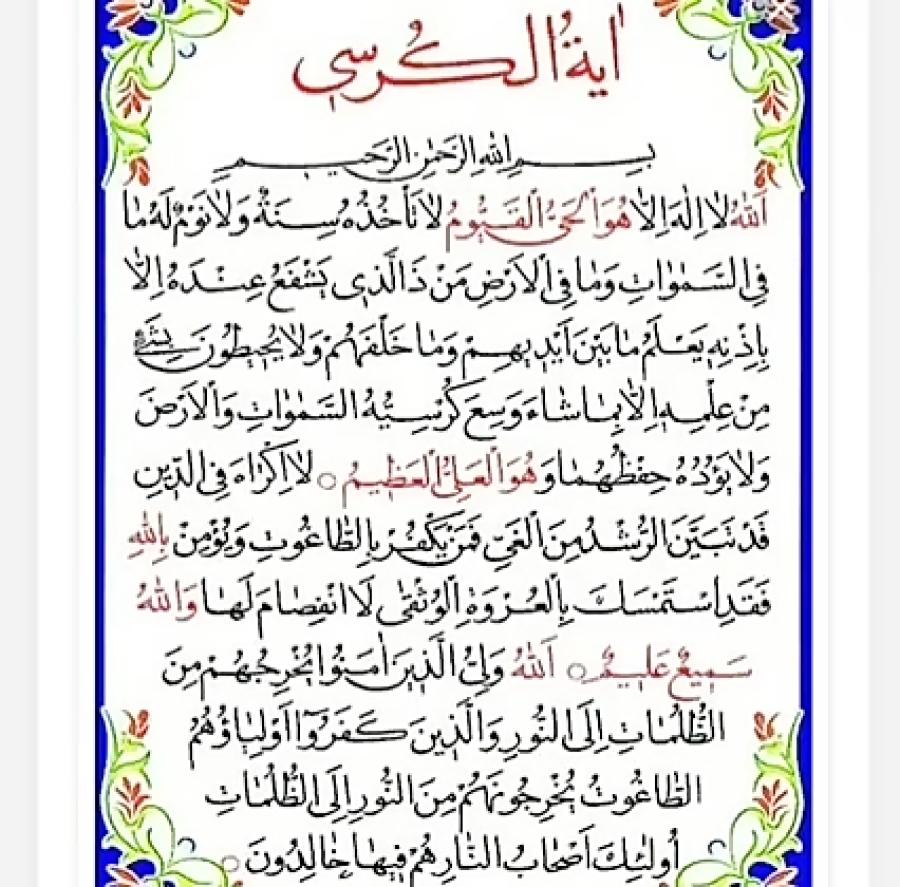 اٰيةُ الكُرسي
بِسْمِ اللهِ الرَّحْمٰنِ الرَّحَيمِ
اَللهُ لا اِلٰهَ اِلاّ هُوَ اْلحَيُّ الْقَيُّومُ لا تَأخُذُهُ سِنَةٌ وَلا نَوْمٌ لَهُ ما
فِي السَّمٰوٰاتِ وَما فِي الْاَرْضِ مَنْ ذَا الَّذي يَشْفَعُ عِنْدَهُ اِلاّ
بِاِذْنِهِ يَعْلَمُ ما بَيْنَ اَيْديهِمْ وَما خَلْفَهُمْ وَلا يُحيطُونَ بِشَيْءٍ
مِنْ عِلْمِهِ اِلاّ بِما شاءَ وَسِعَ كُرْسِيُّهُ السَّمٰواتِ وَالْاَرْضَ
وَلا يَؤُدُهُ حِفْظُهُما وَهُوَ الْعَلِيُّ الْعَظيمُ ○ لا اِكْراهَ فِي الدّينِ
قَدْ تَبَيَّنَ الرُّشْدُ مِنَ الْغَيِّ فَمَنْ يَكْفُرْ بِالطّاغُوتِ وَيُؤْمِنْ بِاللهِ
فَقَدِ اسْتَمْسَكَ بِالْعُرْوَةِ الْوُثْقٰى لَا انْفِصامَ لَها وَاللهُ
سَميعٌ عَليمٌ ○ اَللهُ وَلِيُّ الَّذينَ اٰمَنُوا يُخْرِجُهُمْ مِنَ
الظُّلُماتِ اِلَى النُّورِ وَالَّذينَ كَفَرُوآ اَوْلِياؤُهُمُ
الطّاغُوتُ يُخْرِجُونَهُمْ مِنَ النُّورِ اِلَى الظُّلُماتِ
اُولئِكَ اَصْحابُ النّارِ هُمْ فيها خالِدُونَ ○